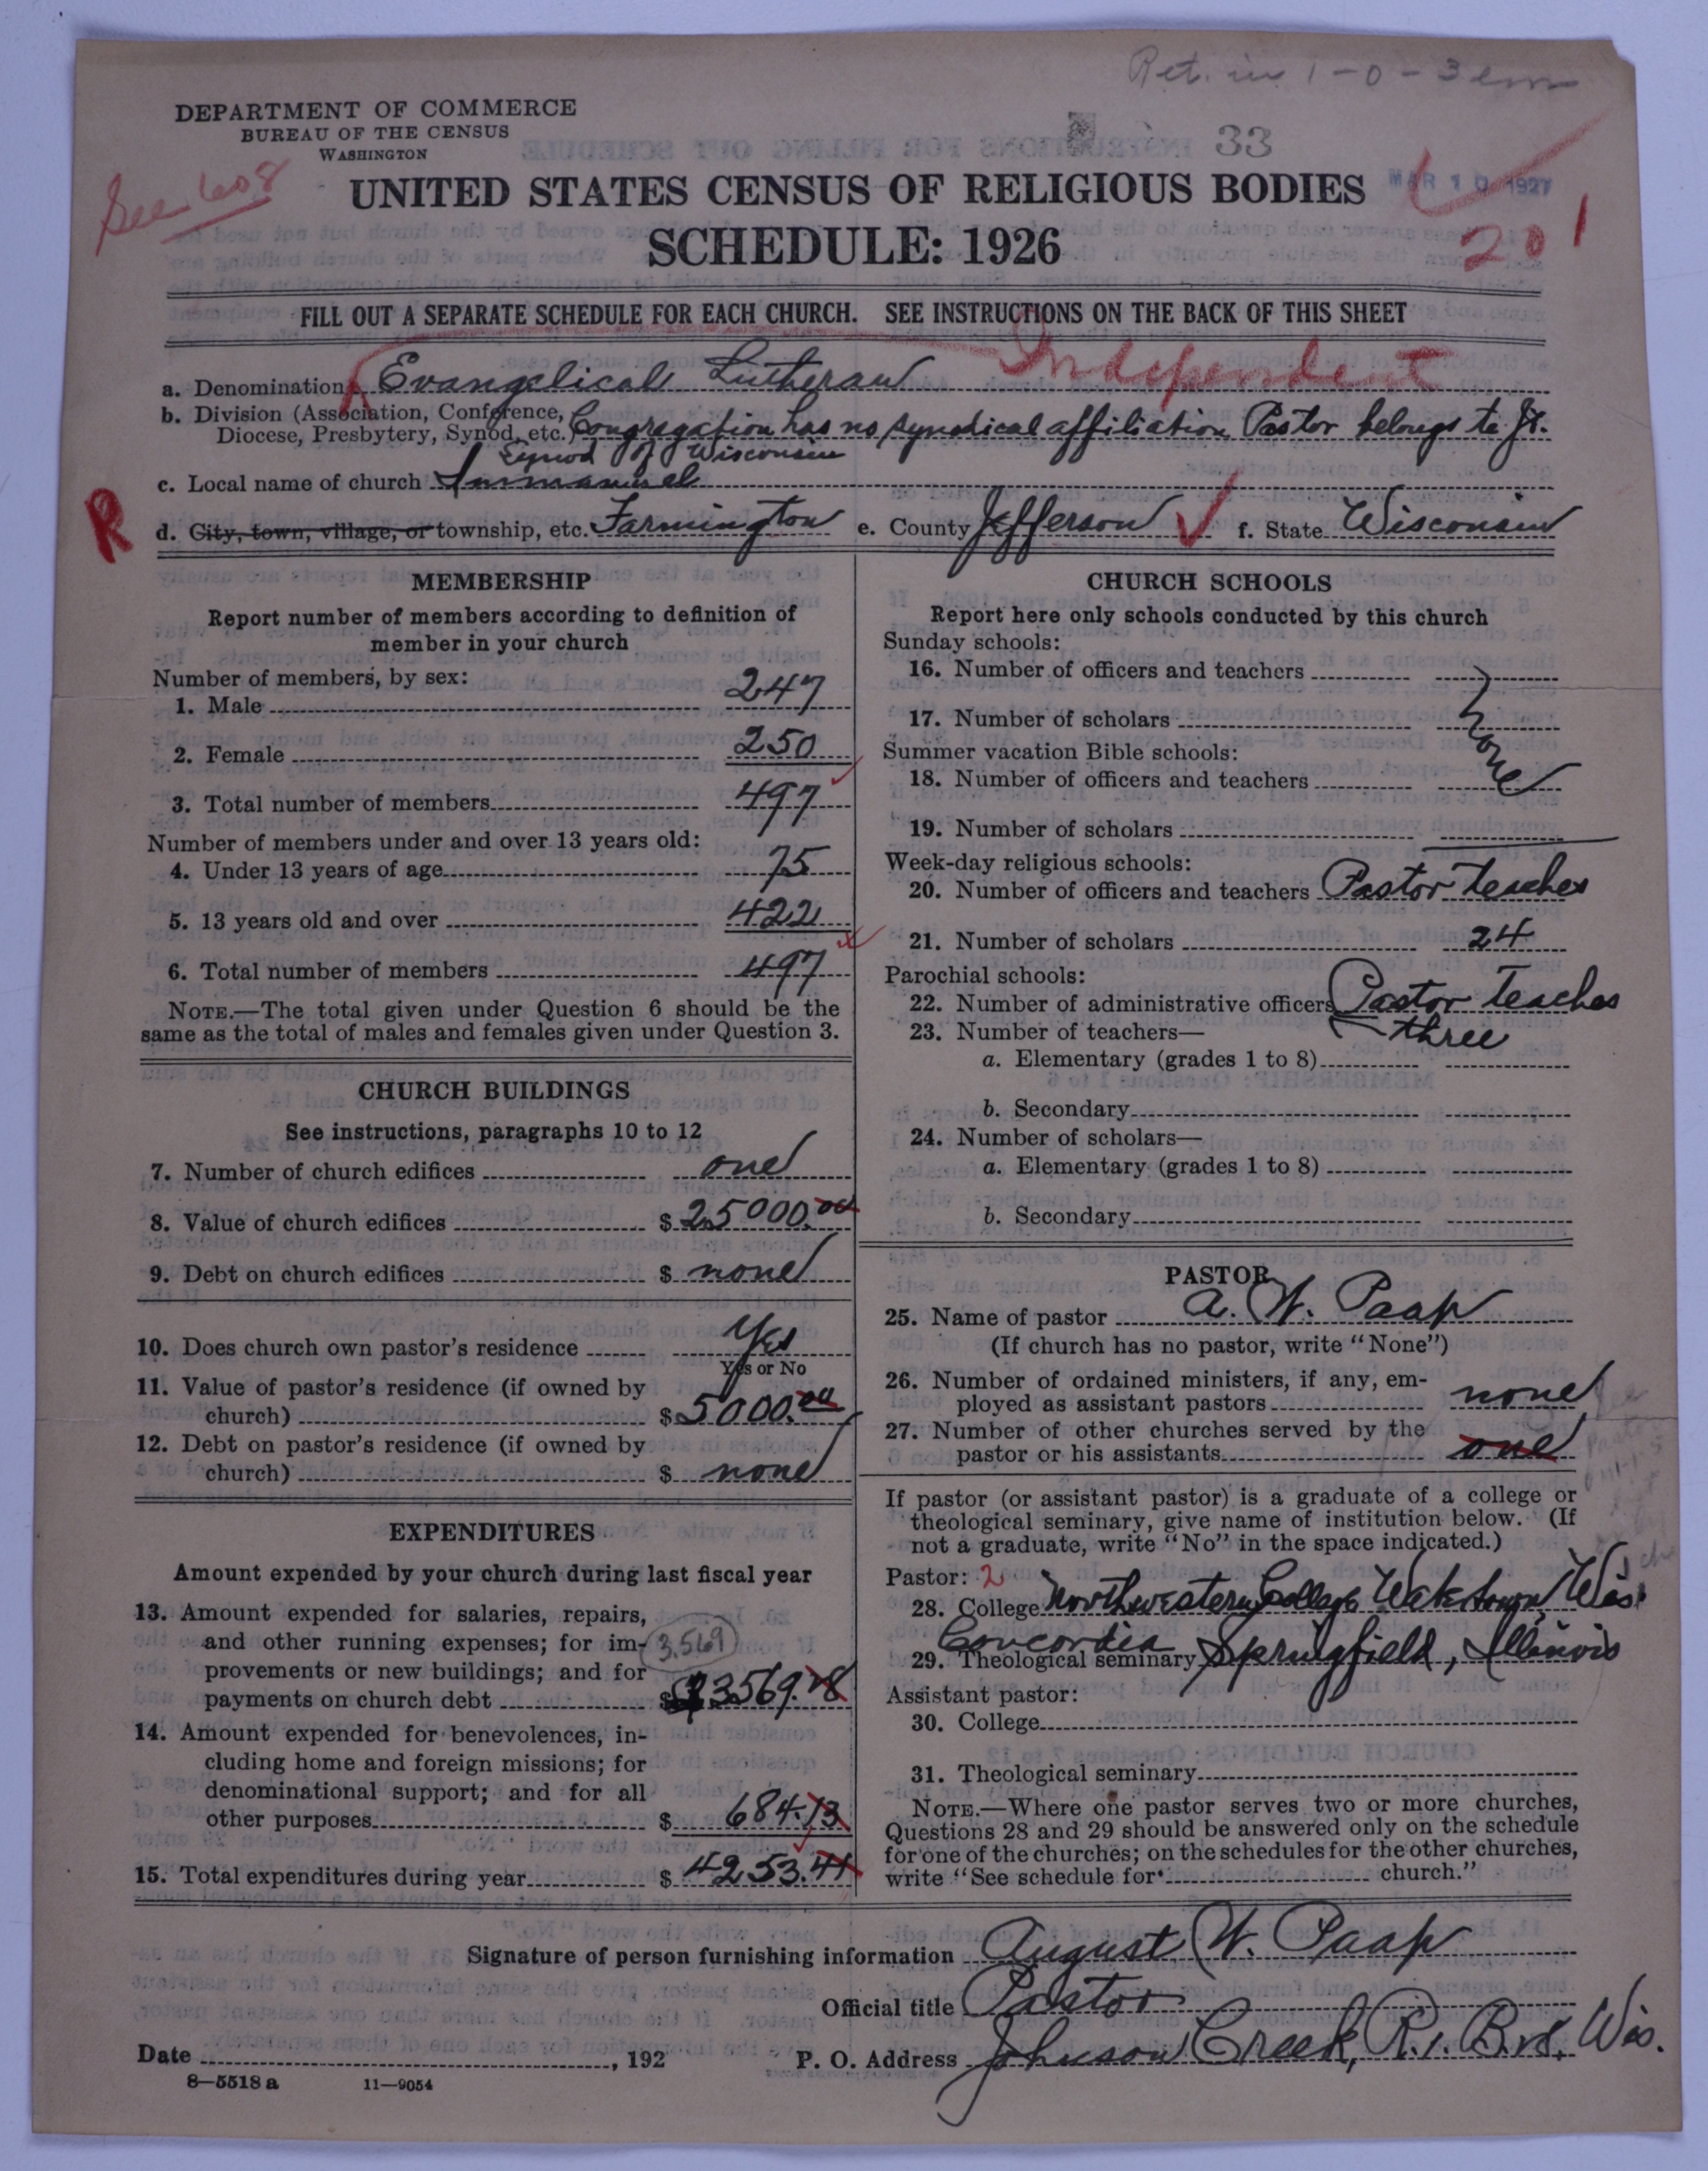 Ret. in 1-0-3 em
DEPARTMENT OF COMMERCE
BUREAU OF THE CENSUS
WASHINGTON
33
See 608
UNITED STATES CENSUS OF RELIGIOUS BODIES
MAR 10 1927
SCHEDULE: 1926
20 1
FILL OUT A SEPARATE SCHEDULE FOR EACH CHURCH. SEE INSTRUCTIONS ON THE BACK OF THIS SHEET
Independent
a. Denomination Evangelical Lutheran
b. Division (Association, Conference,
Diocese, Presbytery, Synod, etc.) Congregation has no synodical affiliation Pastor belongs to Jt.
Synod of Wisconsin
c. Local name of church Immanuel
R
d. City, town, village, or township, etc. Farmington e. County Jefferson f. State Wisconsin
MEMBERSHIP
Report number of members according to definition of
member in your church
Number of members, by sex:
1. Male 247
2. Female 250
3. Total number of members 497
Number of members under and over 13 years old:
4. Under 13 years of age 75
5. 13 years old and over 422
6. Total number of members 497
NOTE.—The total given under Question 6 should be the
same as the total of males and females given under Question 3.
CHURCH BUILDINGS
See instructions, paragraphs 10 to 12
7. Number of church edifices one
8. Value of church edifices $ 25000.00
9. Debt on church edifices $ none
10. Does church own pastor's residence Yes
Yes or No
11. Value of pastor's residence (if owned by
church) $ 5000.00
12. Debt on pastor's residence (if owned by
church) $ none
EXPENDITURES
Amount expended by your church during last fiscal year
13. Amount expended for salaries, repairs,
and other running expenses; for im- 3,569
provements or new buildings; and for
payments on church debt $ 3569.28
14. Amount expended for benevolences, in-
cluding home and foreign missions; for
denominational support; and for all
other purposes $ 684.13
15. Total expenditures during year $ 4253.41
CHURCH SCHOOLS
Report here only schools conducted by this church
Sunday schools:
16. Number of officers and teachers
17. Number of scholars
none
Summer vacation Bible schools:
18. Number of officers and teachers
19. Number of scholars
Week-day religious schools:
20. Number of officers and teachers Pastor teaches
21. Number of scholars 24
Parochial schools:
22. Number of administrative officers Pastor teaches
23. Number of teachers— three
a. Elementary (grades 1 to 8)
b. Secondary
24. Number of scholars—
a. Elementary (grades 1 to 8)
b. Secondary
PASTOR
25. Name of pastor A. W. Paap
(If church has no pastor, write "None")
26. Number of ordained ministers, if any, em-
ployed as assistant pastors none
27. Number of other churches served by the
pastor or his assistants one
If pastor (or assistant pastor) is a graduate of a college or
theological seminary, give name of institution below. (If
not a graduate, write "No" in the space indicated.)
Pastor: 2
28. College Northwestern College Watertown, Wis.
Concordia
29. Theological seminary Springfield, Illinois
Assistant pastor:
30. College
31. Theological seminary
NOTE.—Where one pastor serves two or more churches,
Questions 28 and 29 should be answered only on the schedule
for one of the churches; on the schedules for the other churches,
write "See schedule for church."
Signature of person furnishing information August W. Paap
Official title Pastor
Date , 192
P. O. Address Johnson Creek, R.1. Wis.
8—5518 a 11—9054